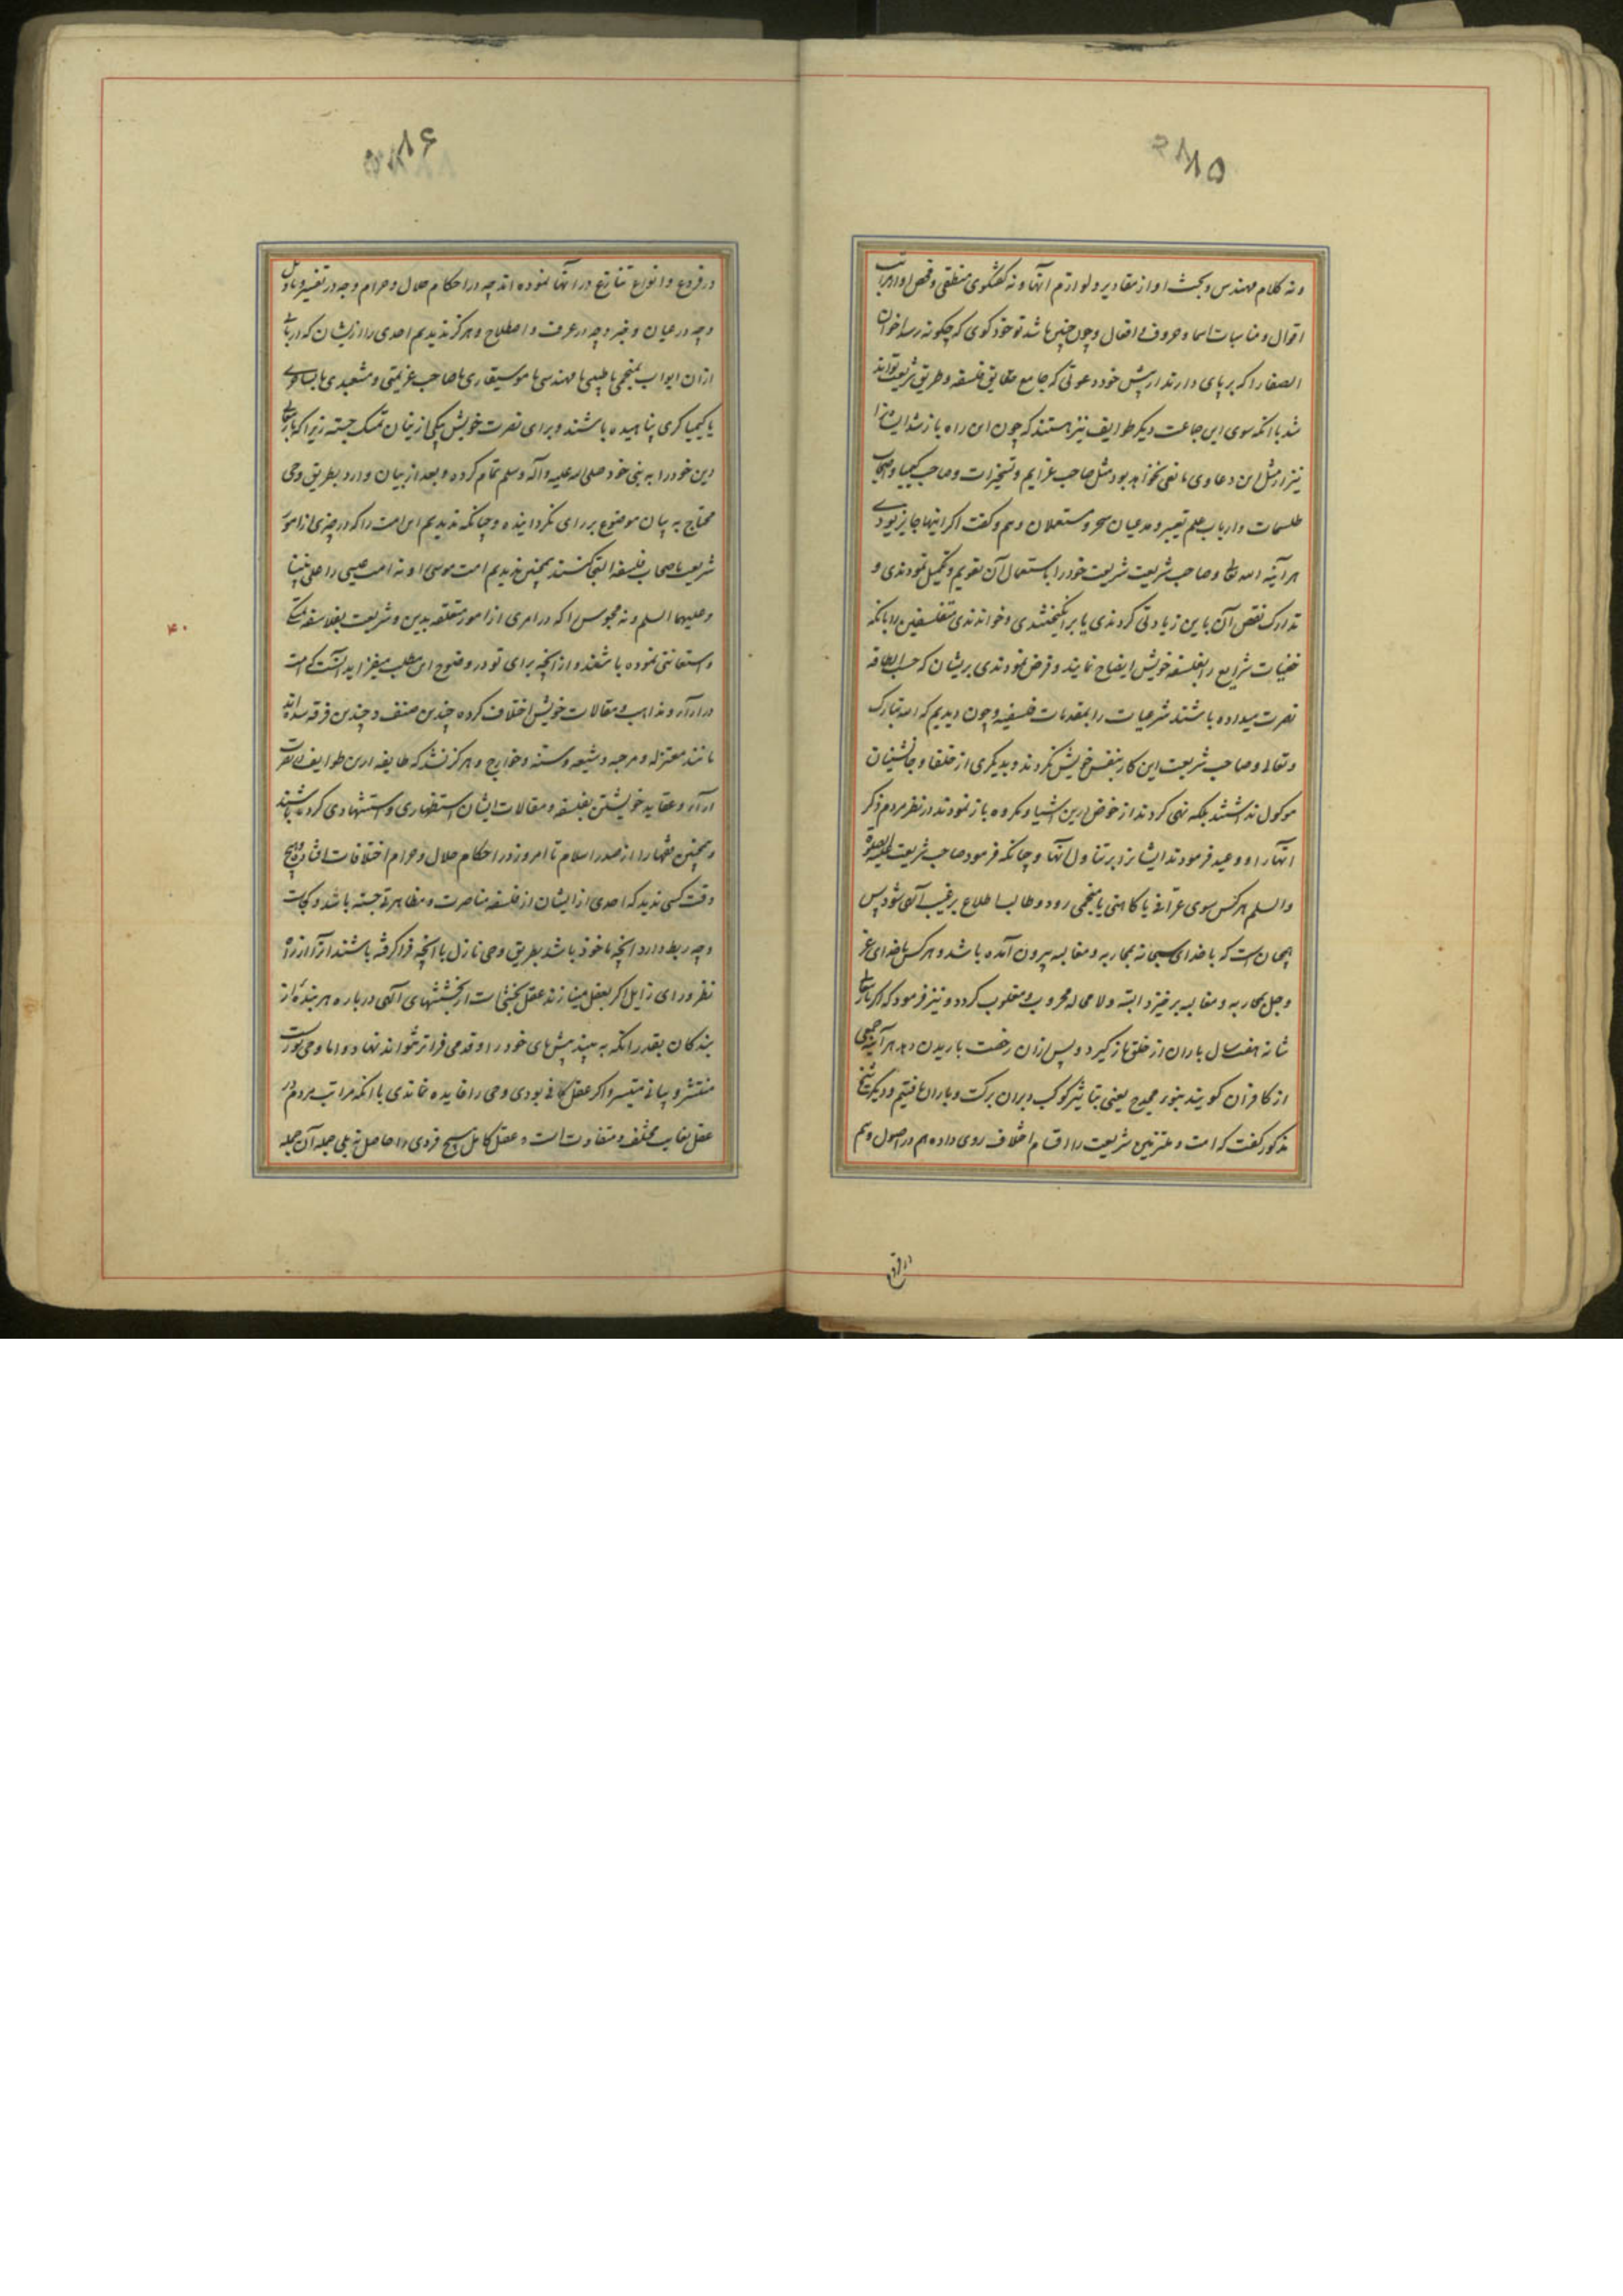 ۸۵
ونه کلام مهندس و بحث او از مقادیر و لوازم آنها و نه گفتگوی منطقی و فحص او از مراتب
اقوال و مناسبات اسما و حروف و افعال و چون چنین باشد تو خود گوی که چگونه رسد اخوان
الصفا را که برپای دارند از پیش خود دعوتی که جامع حقایق فلسفه و طریق شریعت تواند
شد با آنکه سوی این جماعت دیگر طوایف نیز هستند که چون این راه باز شد ایشانرا
نیز از مثل این دعاوی مانعی نخواهد بود مثل صاحب عزایم و تسخیرات و صاحب کیمیا و اصحاب
طلسمات و ارباب علم تعبیر و مدعیان سحر و مستعملان وهم و گفت اگر اینها جایز بودی
هر آینه الله تعالی و صاحب شریعت شریعت خود را باستعمال آن تقویم و تکمیل نمودندی و
تدارک نقص آن باین زیادتی کردندی یا برانگیختندی و خواندندی متفلسفین را بانکه
خفیات شرایع را بفلسفه خویش ایضاح نمایند و فرض نمودندی بریشان که حسب الطاقه
نصرت میداده باشند شرعیات را بمقدمات فلسفیه و چون دیدیم که الله تبارک
و تعالی و صاحب شریعت این کار بنفس خویش نکردند و بدیگری از خلفا و جانشینان
موکول نداشتند بلکه نهی کردند از خوض درین اشیا و مکروه باز نمودند در نظر مردم ذکر
انها را و وعید فرمودند ایشانرا بر تناول آنها و چنانکه فرمود صاحب شریعت علیه الصلوة
والسلم هر کس سوی عرافی یا کاهنی یا منجمی رود و طالب اطلاع بر غیب آلهی شود پس
همچنان است که با خدای سبحانه بمحاربه و مغالبه بیرون آمده باشد و هر کس با خدای عز
وجل بمحاربه و مغالبه برخیزد البته ولامحاله محروب و مغلوب گردد و نیز فرمود که اگر باریتعالی
شانه هفت سال باران از خلق باز گیرد و پس از آن رخصت باریدن دهد هر آینه جمعی
از کافران گویند بنوء مجدح یعنی بتاثیر کوکب دبران برکت و باران یافتیم و دیگر شیخ
مذکور گفت که امت و ملتزمین شریعت را اقسام اختلاف روی داده هم در اصول و هم
در فروع
۸۶
در فروع و انواع تنازع در آنها نموده اند چه در احکام حلال و حرام و چه در تفسیر و تاویل
و چه در عیان و خبر و چه در عرف و اصطلاح و هرگز ندیدیم احدی را از یشان که در بابی
از ان ابواب بمنجمی یا طبیبی یا مهندسی یا موسیقاری یا صاحب عزیمتی و مشعبدی یا ساحری
یا کیمیاگری پناهیده باشند و برای نصرت خویش بیکی از یشان تمسک جسته زیرا که باریتعالی
دین خود را به نبی خود صلی الله علیه و آله وسلم تمام کرده و بعد از بیان وارد بطریق وحی
محتاج به بیان موضوع برای نگردانیده و چنانکه ندیدیم این امت را که در چیزی از امور
شریعت باصحاب فلسفه التجا کنند همچنین ندیدیم امت موسی را و نه امت عیسی را علی نبینا
و علیهما السلم و نه مجوس را که در امری از امور متعلقه بدین و شریعت بفلاسفه تمسک
و استعانتی نموده باشند و از آنچه برای تو در وضوح این مطلب میفزاید آنست که امت
در آراء و مذاهب و مقالات خویش اختلاف کرده چندین صنف و چندین فرقه شده اند
مانند معتزله و مرجیه و شیعه و سنه و خوارج و هرگز نشد که طایفه ازین طوایف در نصرت
آراء و عقاید خویشتن بفلسفه و مقالات ایشان استظهاری و استشهادی کرده باشند
و همچنین فقها را از صدر اسلام تا امروز در احکام حلال و حرام اختلافات افتاده و هیچ
وقت کسی ندید که احدی از ایشان از فلسفه مناصرت و مظاهرتی جسته باشد و کجاست
و چه ربط دارد آنچه ماخوذ باشد بطریق وحی نازل با آنچه فراگرفته باشند آنرا از راه
نظر و رای زایل اگر بعقل مینازند عقل بخشی است از بخششهای آلهی درباره هر بنده از
بندگان بقدر آنکه به بیند پیش پای خود را و قدمی فراتر نتواند نهاد و اما وحی نوریست
منتشر و بیانی متیسر و اگر عقل کافی بودی وحی را فایده نماندی با آنکه مراتب مردم در
عقل بغایت مختلف و متفاوت است و عقل کامل هیچ فردی را حاصل نه بلی جمله آن جمله
۴۰